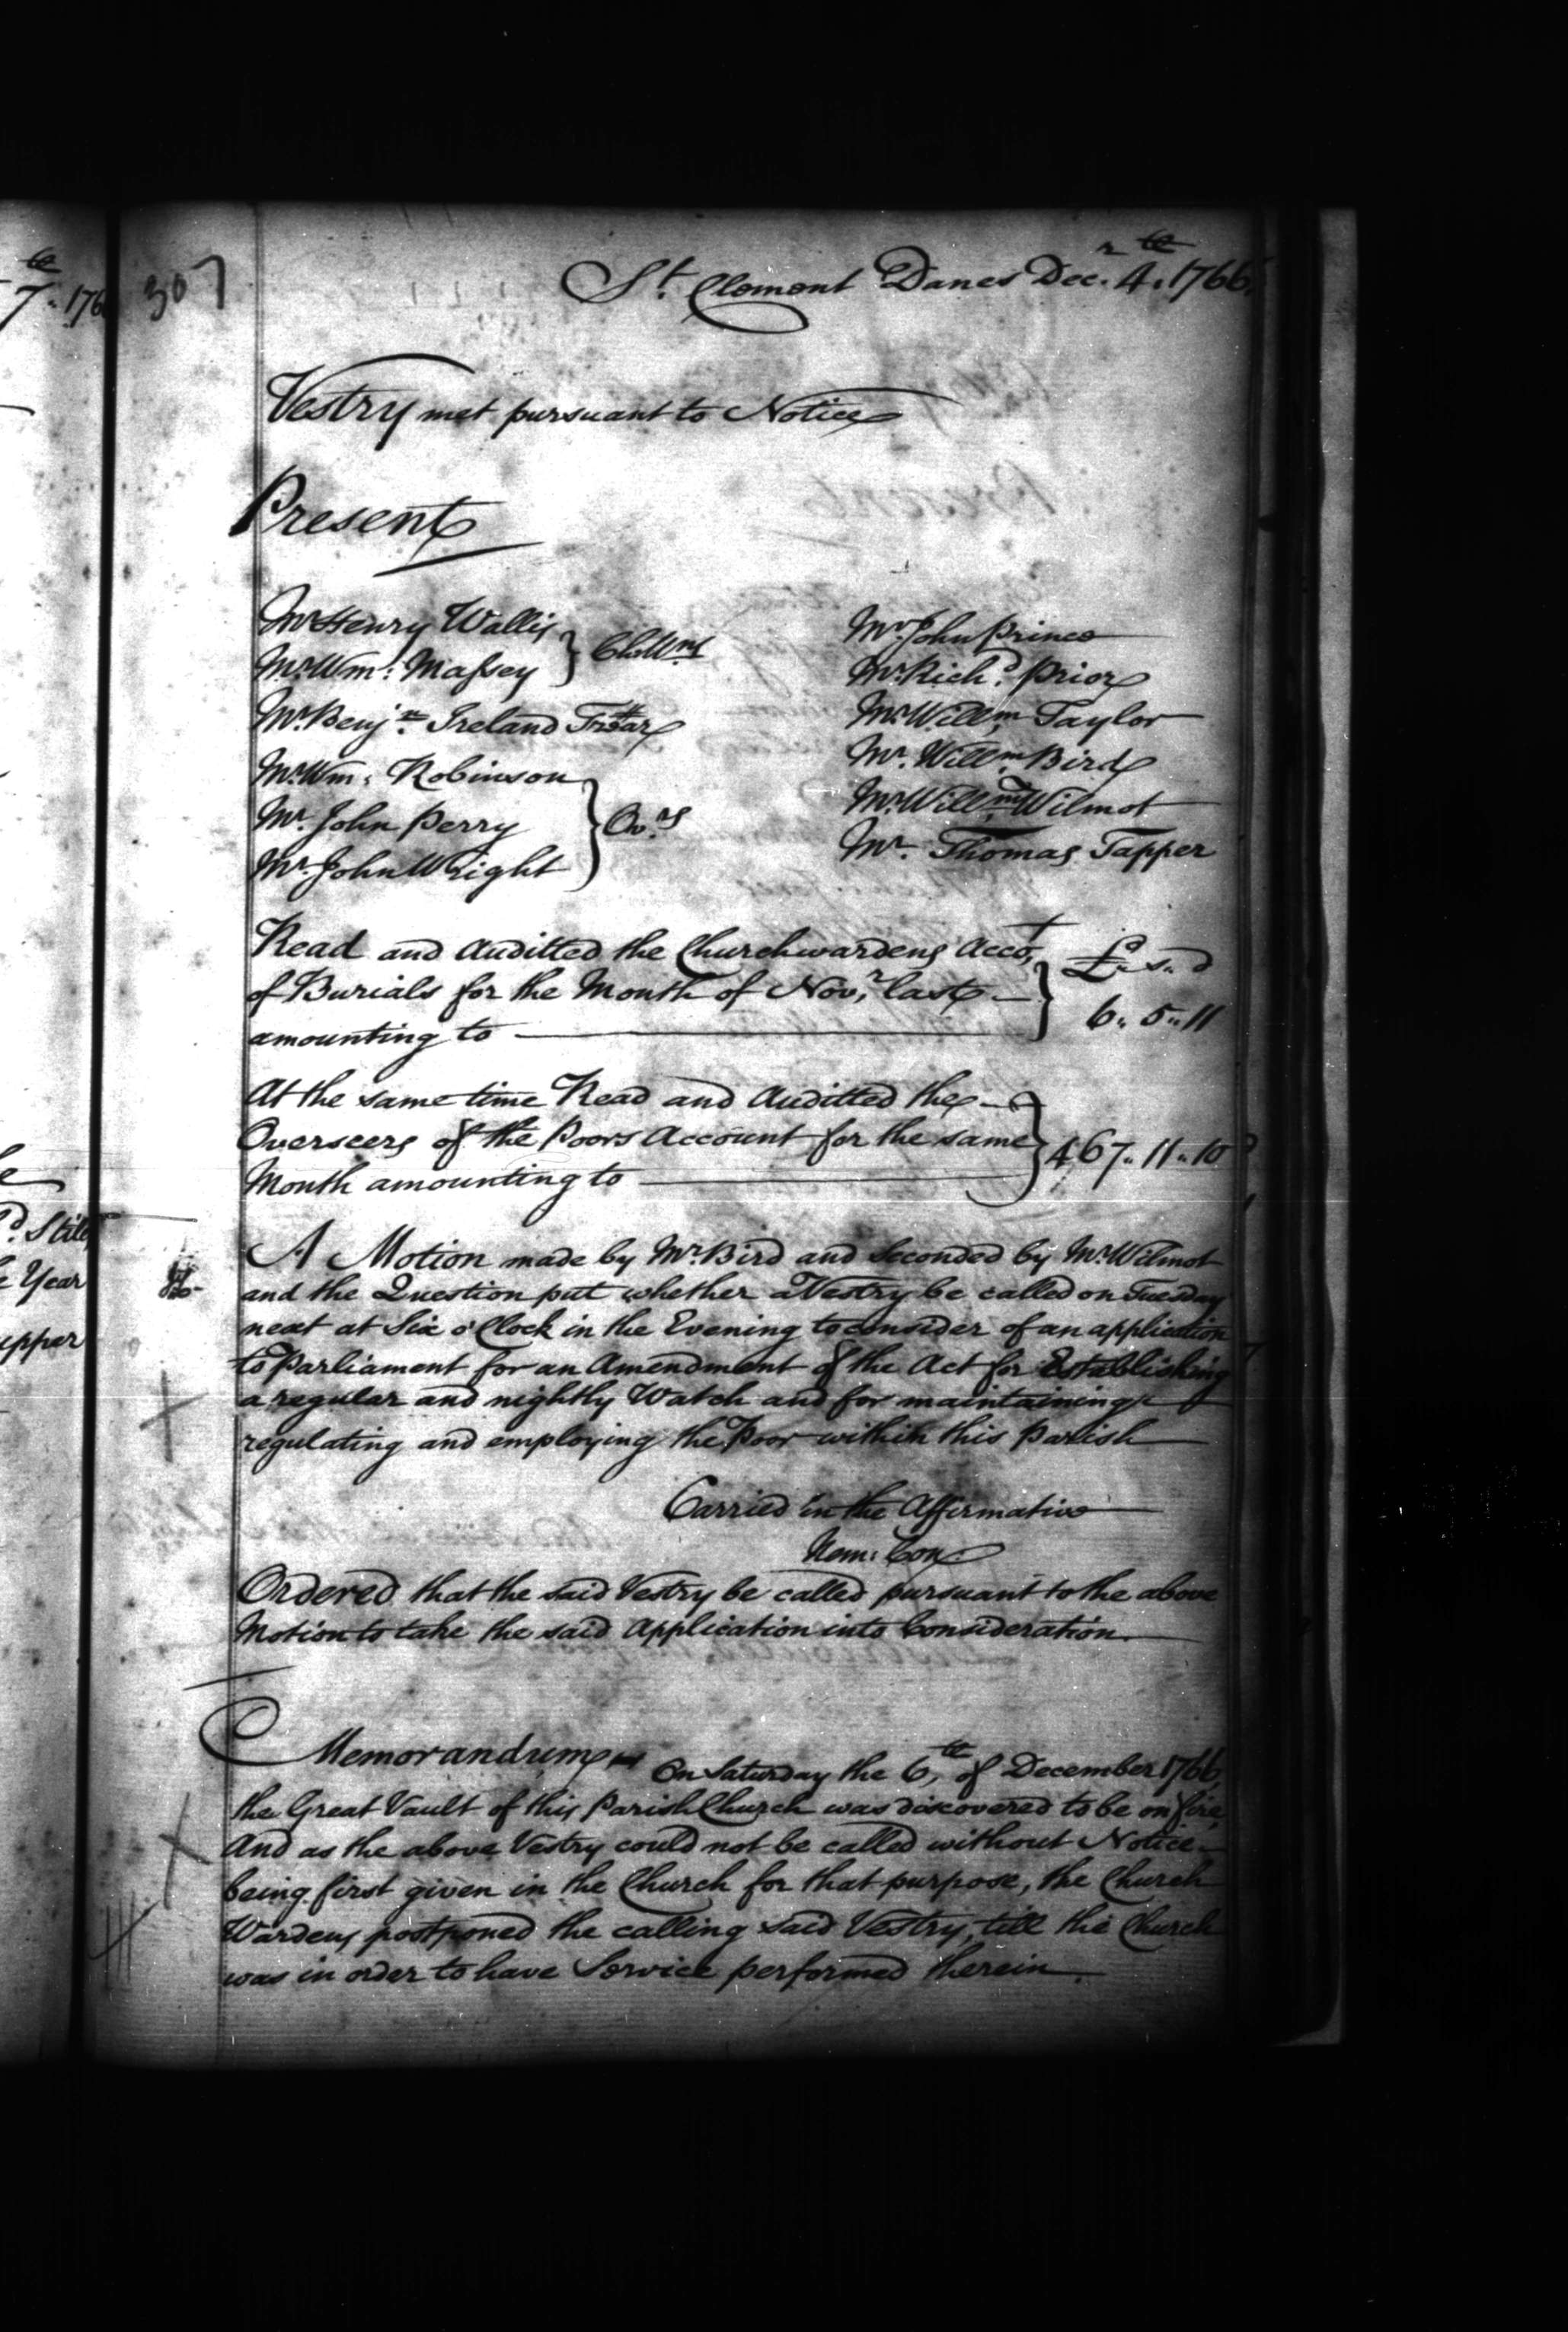 307
St. Clement Danes Decr. 4th. 1766.
Vestry met pursuant to Notice
Present
Mr Henry Wallis } ChWns
Mr Wm: Massey
Mr Benjn. Ireland Trear
Mr Wm: Robinson
Mr. John Perry } Ovrs
Mr. John Wright
Mr John Prince
Mr Richd. Prior
Mr Willm. Taylor
Mr. Willm. Bird
Mr Willm. Wilmot
Mr. Thomas Tapper
Read and Auditted the Churchwardens Accot. £. s. d
of Burials for the Month of Novr. last
amounting to 6. 5. 11
At the same time Read and Auditted the
Overseers of the Poors Account for the same 467. 11. 10
Month amounting to
A Motion made by Mr. Bird and Seconded by Mr. Wilmot
and the Question put whether a Vestry be called on Tuesday
next at Six o'Clock in the Evening to consider of an application
to Parliament for an Amendment of the Act for Establishing
a regular and nightly Watch and for maintaining
regulating and employing the Poor within this Parish
Carried in the Affirmative
Nem: Con:
Ordered that the said Vestry be called pursuant to the above
Motion to take the said Application into Consideration.
Memorandum On Saturday the 6th. of December 1766,
the Great Vault of this Parish Church was discovered to be on fire,
And as the above Vestry could not be called without Notice
being first given in the Church for that purpose, the Church
Wardens postponed the calling said Vestry, till the Church
was in order to have Service performed therein.
7. 176
d. Stile
Year